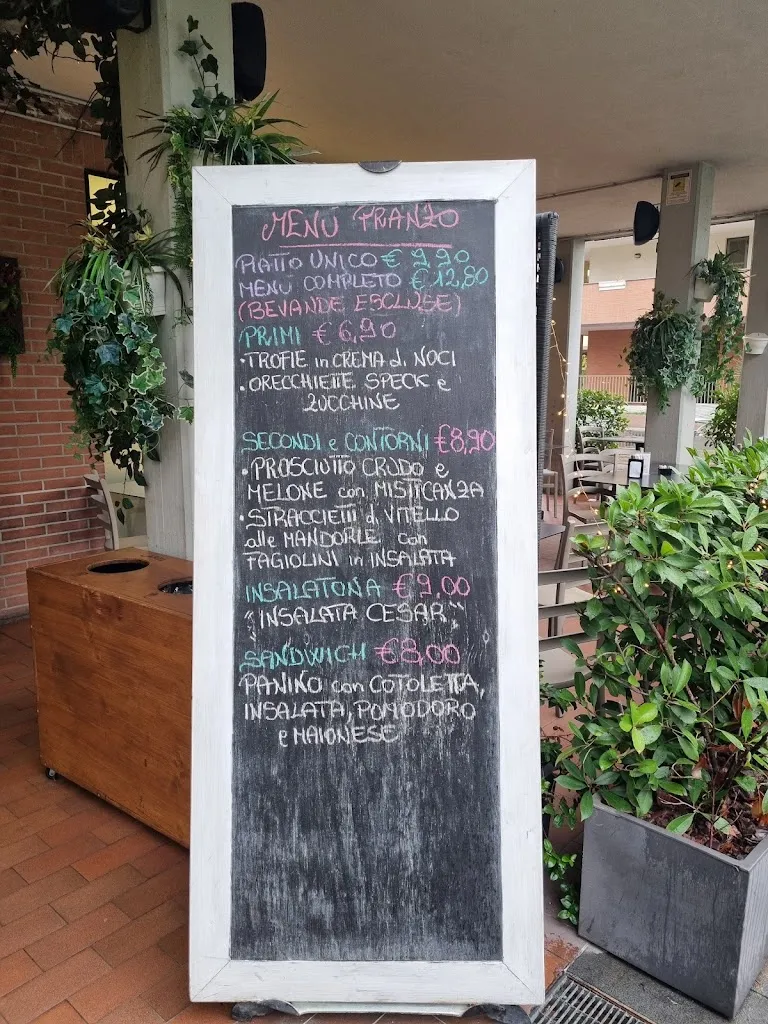 MENÙ PRANZO
PIATTO UNICO € 9,90
MENÙ COMPLETO € 12,80
(BEVANDE ESCLUSE)
PRIMI € 6,90
• TROFIE in CREMA di NOCI
• ORECCHIETTE SPECK e
ZUCCHINE
SECONDI e CONTORNI €8,90
• PROSCIUTTO CRUDO e
MELONE con MISTICANZA
• STRACCIETTI di VITELLO
alle MANDORLE con
FAGIOLINI in INSALATA
INSALATONA €9,00
"INSALATA CESAR"
SANDWICH €8,00
PANINO con COTOLETTA,
INSALATA, POMODORO
e MAIONESE